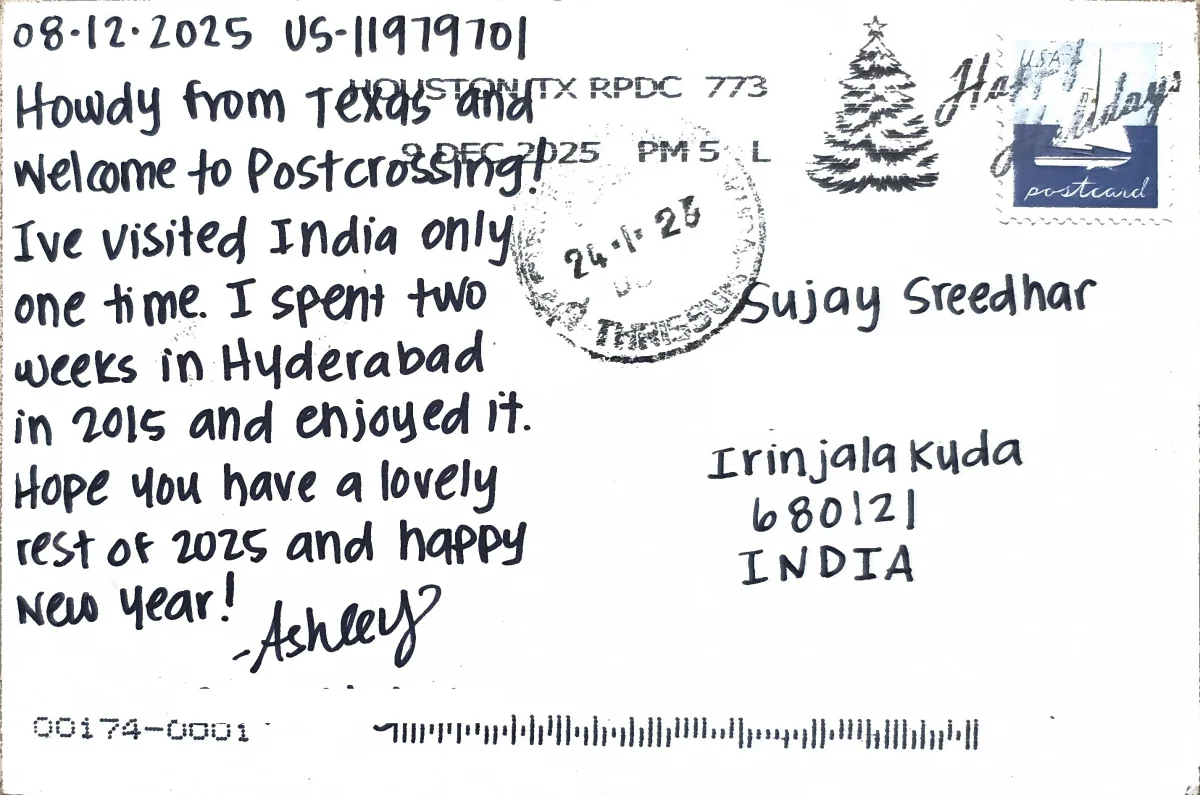 08·12·2025 US-11979701
Howdy from Texas and
Welcome to Postcrossing!
Ive visited India only
one time. I spent two
weeks in Hyderabad
in 2015 and enjoyed it.
Hope you have a lovely
rest of 2025 and happy
New Year!
-Ashley
HOUSTON TX RPDC 773
9 DEC 2025 PM 5 L
Happy Holidays
USA
postcard
THRISSUR
Sujay Sreedhar
Irinjalakuda
680121
INDIA
00174-0001